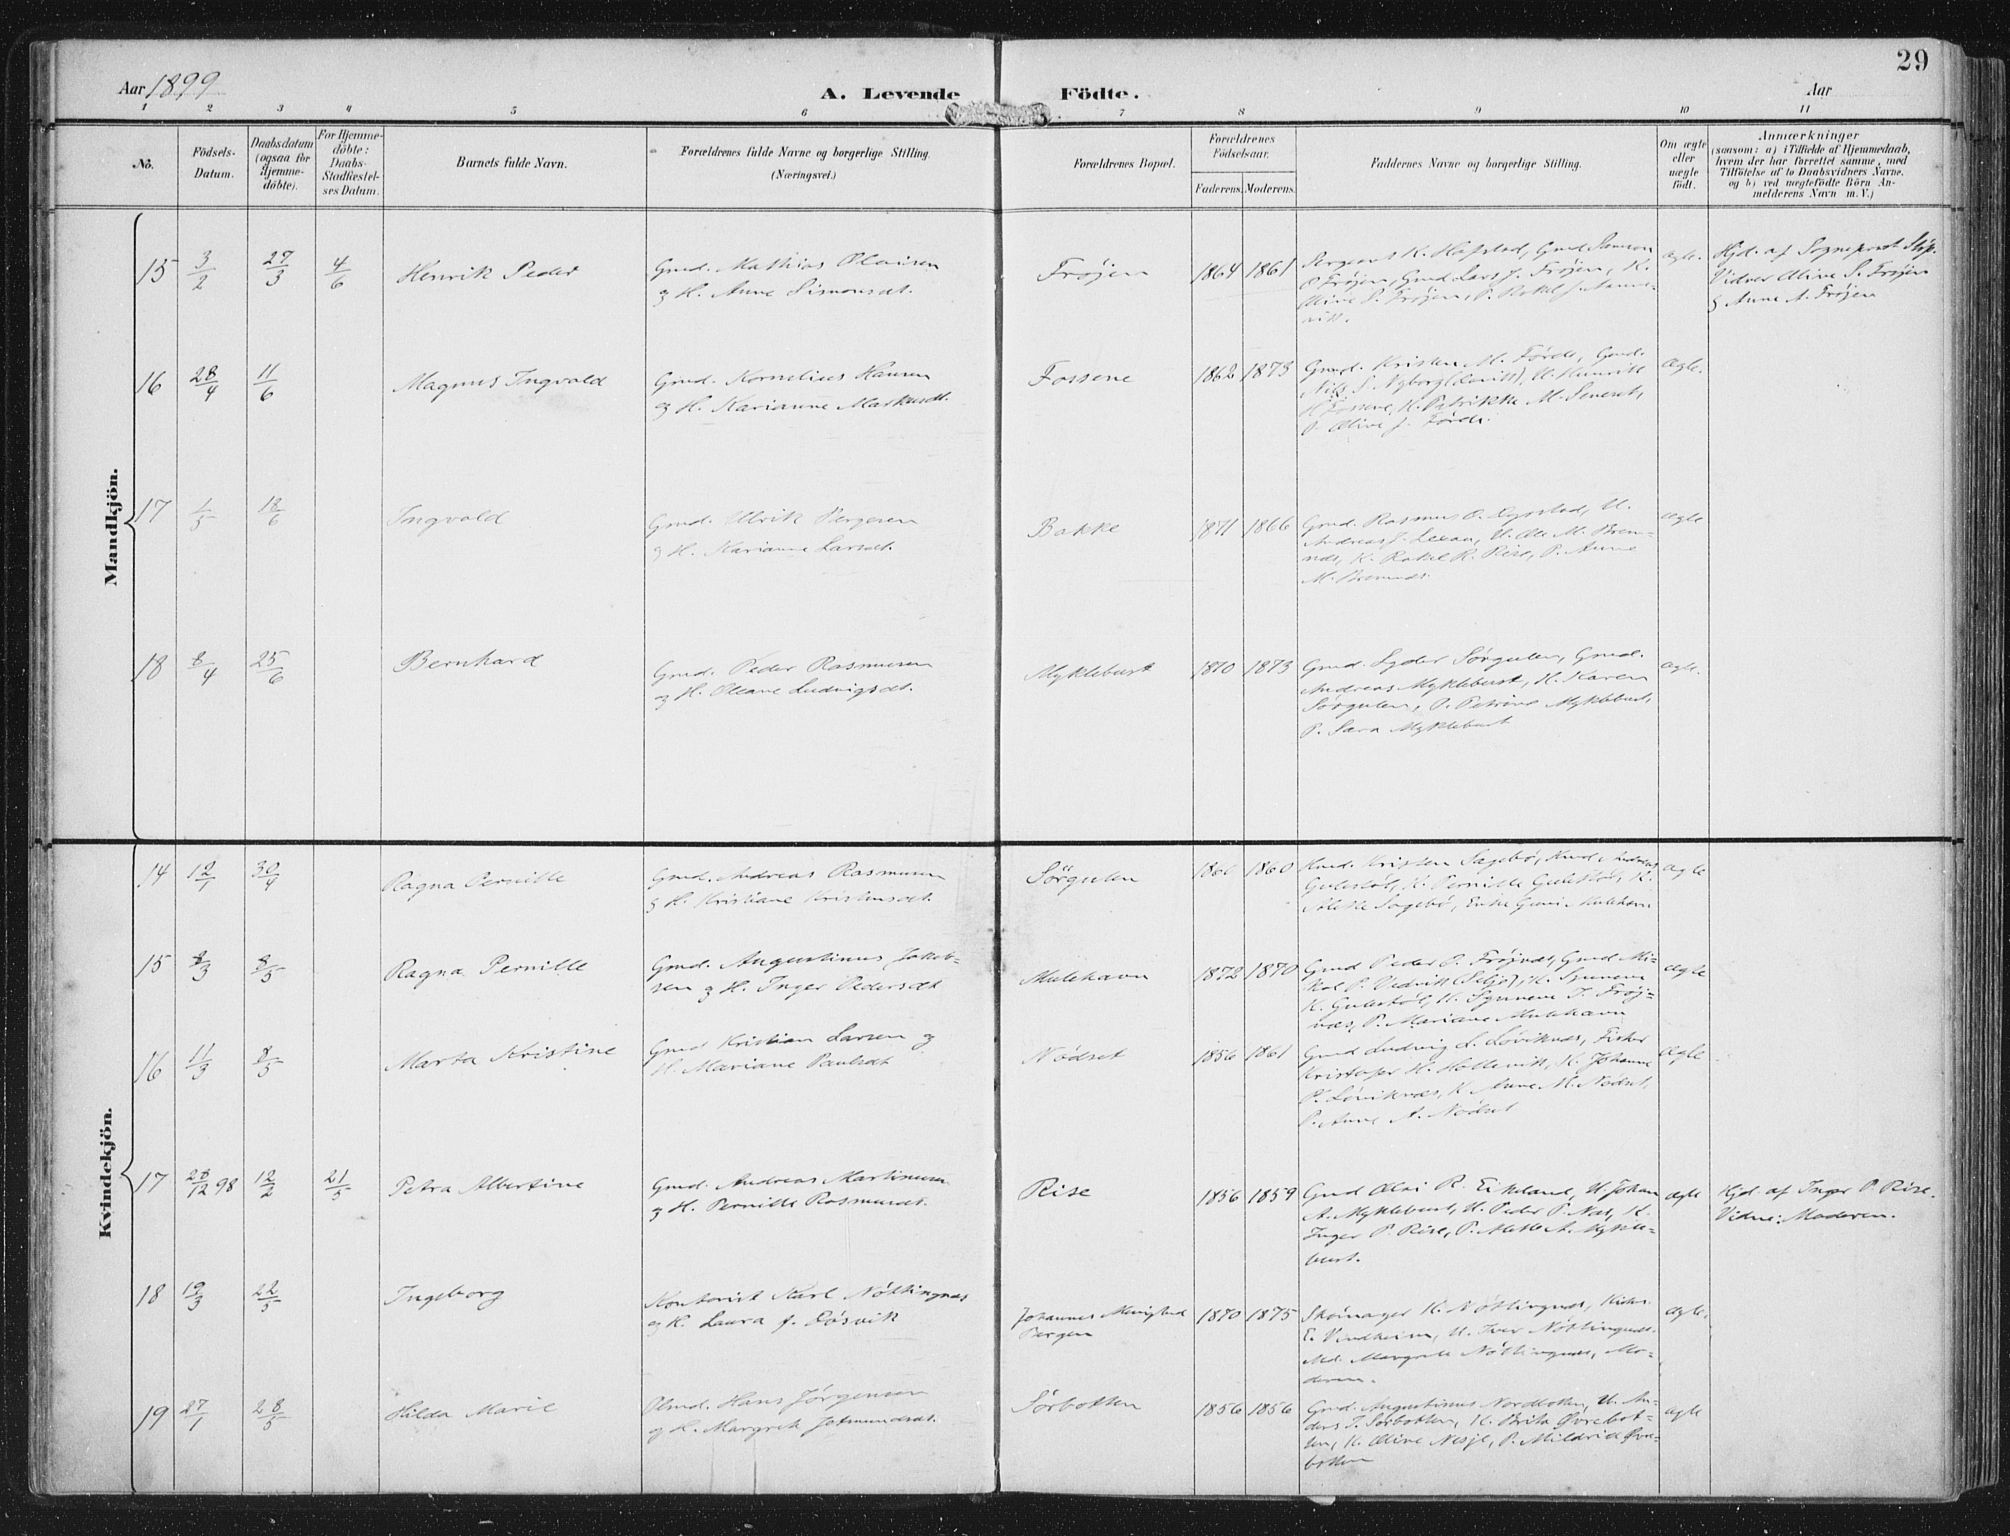 29
Aar 1899
A. Levende Födte.
Aar
1 2 3 4 5 6 7 8 9 10 11
No.
Födsels-
Datum.
Daabsdatum
(ogsaa for
Hjemme-
döbte).
For Hjemme-
döbte:
Daabs-
Stadfæstel-
ses Datum.
Barnets fulde Navn.
Forældrenes fulde Navne og borgerlige Stilling.
(Næringsvei.)
Forældrenes Bopæl.
Forældrenes
Födselsaar.
Faderens. Moderens.
Faddernes Navne og borgerlige Stilling.
Om ægte
eller
uægte
födt.
Anmærkninger
(saasom: a) i Tilfælde af Hjemmedaab,
hvem der har forrettet samme, med
Tilföielse af to Daabsvidners Navne,
og b) ved uægtefödte Börn An-
melderens Navn m.V.)
Mandkjön.
15 3/2 27/3 4/6 Henrik Peder
Gmd. Mathias Olaisen
og H. Anne Simonsdt.
Frøjen 1864 1861
Sergeant K. Hafstad, Gmd Samson
S Frøjen, Gmd. Lars J. Frøjen, K.
Olive S. Frøjen, P. Rakel J. Anne-
vik.
ægte.
Hjd. af Sogneprest
Vidner Olive S. Frøjen
& Anne A. Frøjen
16 28/4 11/6 Magnus Ingvald
Gmd. Kornelius Hansen
og H. Karianne Markusdt.
Fossene 1862 1873
Gmd. Kristen M. Førde, Gmd.
Nils S. Nyborg (Davik), U. Henrik
H Fossene, K. Petrikke M.
P. Olive J. Førde.
Ægte.
17 1/5 18/6 Ingvald
Gmd. Ulrik Pergesen
og H. Karianne Larsdt.
Bakke 1871 1866
Gmd. Rasmus O. U.
Andreas J. U. Ole M. Brem-
nes, K. Rakel R. Rise, P. Anne
M. Bremnes.
Ægte
18 8/4 25/6 Bernhard
Gmd. Peder Rasmusen
og H. Oleane Ludvigsdt.
Myklebust 1870 1873
Gmd. Syder Sørgulen, Gmd.
Andreas Myklebust, K. Karen
Sørgulen, P. Petrine Myklebust,
P. Sara Myklebust
ægte.
Kvindekjön.
14 12/1 30/4 Ragna Pernille
Gmd. Andreas Rasmusen
& H. Kristiane Kristensdt.
Sørgulen 1860
Gmd. Kristen Sagebø, Andreas
Gulestöl, K. Pernille Gulestöl, K.
Sagebø, Enke Guni Mulehavn
ægte
15 8/3 8/5 Ragna Pernille
Gmd. Augustinus Jakob-
sen og H. Inger Pedersdt
Mulehavn 1872 1870
Gmd Peder P. Frøjnæs, Gmd Mi-
kal P. Vedvik (Selje), K. Synneve
K. Gulestöl, K. Synneve J. Frøj-
næs, P. Mariane Mulehavn
ægte
16 11/3 8/5 Marta Kristine
Gmd Kristian Larsen og
H. Mariane Paulsdt
Nødset 1856 1861
Gmd Ludvig L. Løviknæs, Fisker
Kristofer H. Hollevik, K. Johanne
P. Løviknæs, K Anne M. Nødset,
P. Anne A. Nødset
Ægte
17 28/12 98 12/2 21/5 Petra Albertine
Gmd. Andreas Martinusen
og H. Pernille Rasmusdt.
Rise 1856 1859
Gmd Olai R. Eikeland, U. Johan
A. Myklebust, U. Peder P. Næs, K.
Inger P. Rise, P. Mette A. Mykle-
bust.
ægte
Hjd. af Inger P. Rise.
Vidne: Moderen.
18 19/3 22/5 Ingeborg
Kontorist Karl Nøttingnæs
og H. Laura f. Døsvik
Johannes
Bergen
1870 1875
Skomager K. Nøttingnæs,
E. Vindheim, U. Iver Nøttingnæs.
Md. Margrete Nøttingnæs, Mo-
deren.
ægte.
19 27/1 28/5 Hilda Marie
Hans Jørgensen
og H. Margrete Jetmundsdt.
Sørbotten 1856 1856
Gmd. Augustinus Nordbotten, U. An-
ders T. Sørbotten, K. Brita Øvrebot-
ten, K. Olive Nesje, P. Mildrid Øvre-
botten
ægte